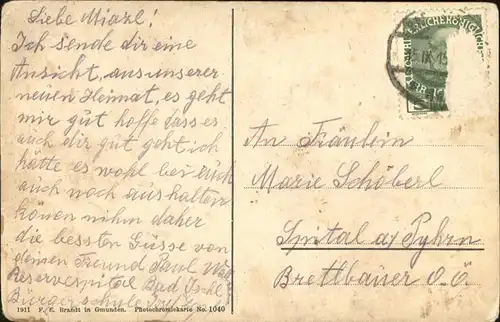 Liebe Miazl!
Ich sende dir eine
Ansicht, aus unserer
neuen Heimat, es geht
mir gut hoffe dass es
auch dir gut geht ich
hätte es wohl bei euch
auch noch aushalten
könen nihm daher
die bessten Güsse von
deinen Freund Paul
Reservespital Bad Ischl
Bürgerschule
1911 F. E. Brandt in Gmunden. Photochromiekarte No. 1040
An Fräulein
Marie Schöberl
Spital a/ Pyhrn
Brettbauer O.Ö.